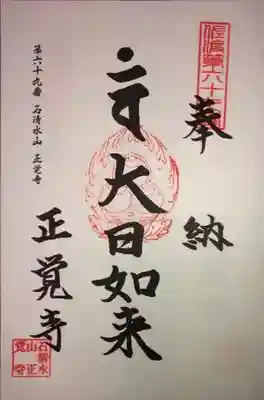 奉納
大日如来
正覚寺
第六十九番 石清水山 正覚寺
石清水
山正
覚寺